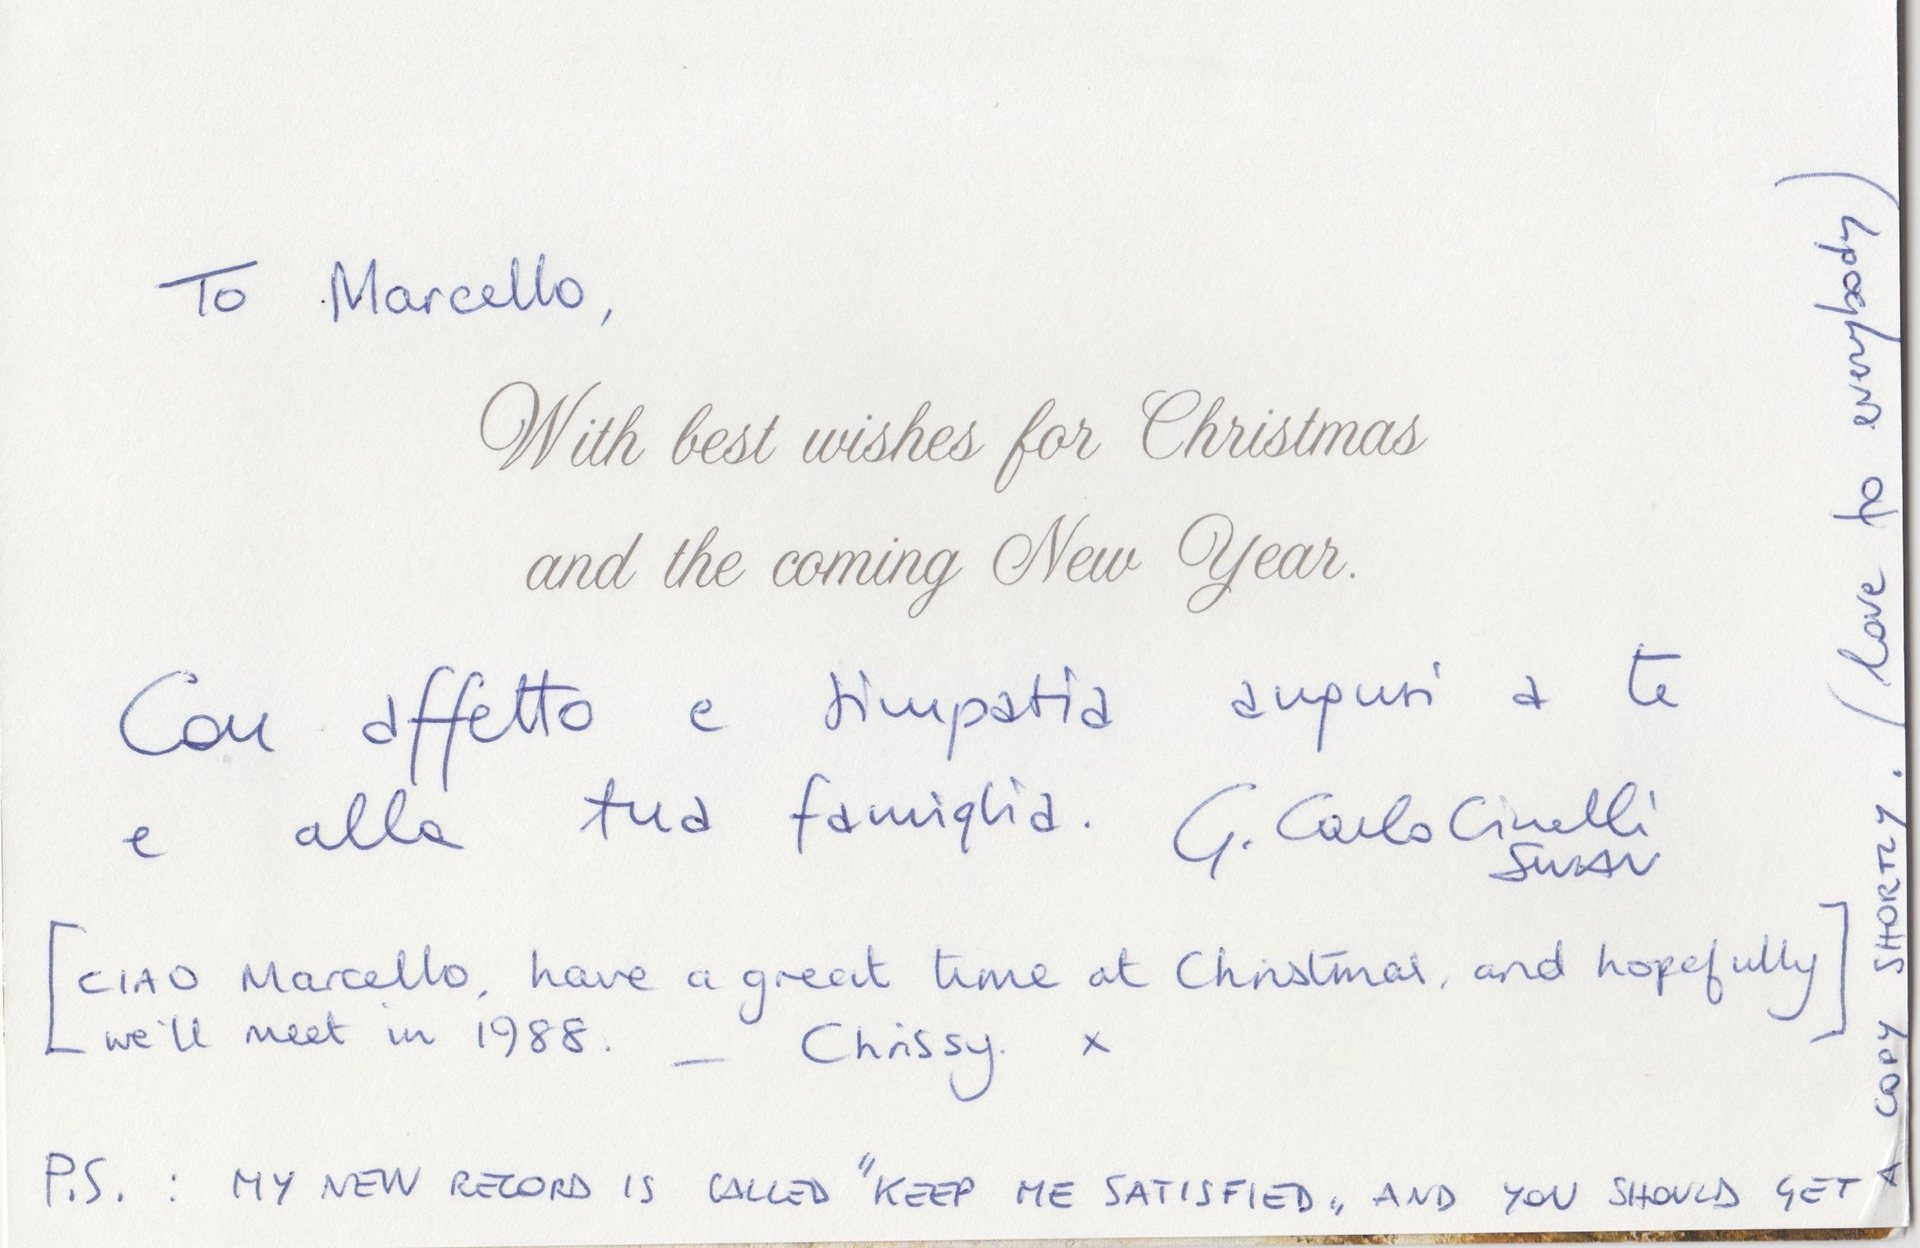 To Marcello,
With best wishes for Christmas
and the coming New Year.
Con affetto e simpatia auguri a te
e alla tua famiglia. G. Carlo Cinelli
SUSAN
[CIAO Marcello, have a great time at Christmas, and hopefully
we'll meet in 1988. _ Chrissy. x]
P.S. : MY NEW RECORD IS CALLED "KEEP ME SATISFIED„ AND YOU SHOULD GET
A COPY SHORTLY. (love to everybody)